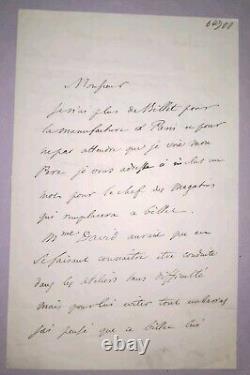 Monsieur
Je n'ai plus de Billet pour
la manufacture et Paris
ne pas attendre que je voie mon
Père je vous adresse inclus un
mot pour le chef des magasins
qui remplacera ce billet.
Mme David aurait pu en
se faisant connaître être conduite
dans les ateliers sans difficulté
mais pour lui éviter tout embarras
j'ai pensé que ce billet lui